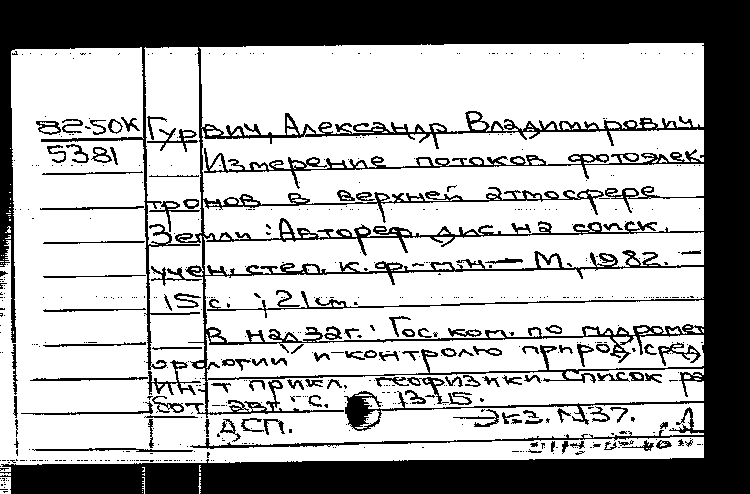 82-50К Гурвич, Александр Владимирович.
5381 Измерение потоков фотоэлек-
тронов в верхней атмосфере
Земли : Автореф. дис. на соиск.
учен. степ. к. ф.-м.н. — М., 1982. —
15 с. ; 21 см.
В надзаг.: Гос. ком. по гидромете
орологии и контролю природ. сред
Ин-т прикл. геофизики. Список ра
бот авт.: с. 13-15.
ДСП. Экз. №37.